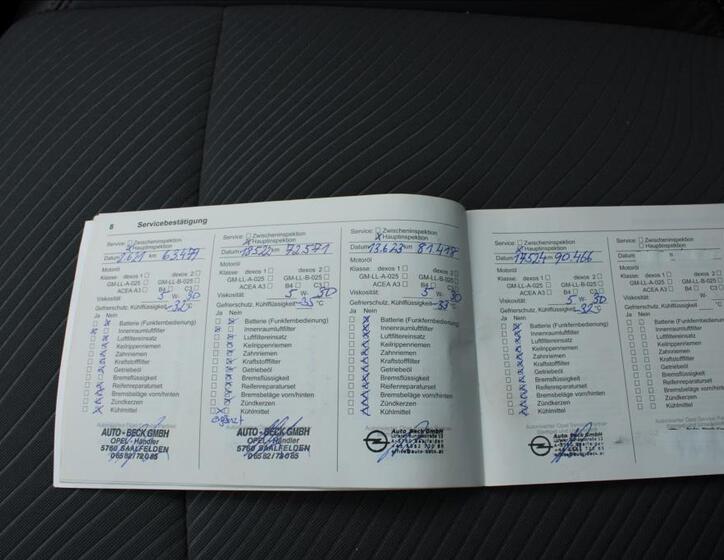 8 Servicebestätigung
Service: Zwischeninspektion
Hauptinspektion
Datum km 63.479
Motoröl
Klasse: dexos 1 dexos 2
GM-LL-A-025 GM-LL-B-025
ACEA A3 B4 C3
Viskosität 5 W- 30
Gefrierschutz, Kühlflüssigkeit °C
Ja Nein
Batterie (Funkfernbedienung)
Innenraumluftfilter
Luftfiltereinsatz
Keilrippenriemen
Zahnriemen
Kraftstofffilter
Getriebeöl
Bremsflüssigkeit
Reifenreparaturset
Bremsbeläge vorn/hinten
Zündkerzen
Kühlmittel
AUTO - BECK GMBH
OPEL - Händler
5760 SAALFELDEN
06582/72085
Service: Zwischeninspektion
Hauptinspektion
Datum 18.5.22 km 72.571
Motoröl
Klasse: dexos 1 dexos 2
GM-LL-A-025 GM-LL-B-025
ACEA A3 B4 C3
Viskosität 5 W- 30
Gefrierschutz, Kühlflüssigkeit -35 °C
Ja Nein
Batterie (Funkfernbedienung)
Innenraumluftfilter
Luftfiltereinsatz
Keilrippenriemen
Zahnriemen
Kraftstofffilter
Getriebeöl
Bremsflüssigkeit
Reifenreparaturset
Bremsbeläge vorn/hinten
Zündkerzen
Kühlmittel
AUTO - BECK GMBH
OPEL - Händler
5760 SAALFELDEN
06582/72085
Service: Zwischeninspektion
Hauptinspektion
Datum 13.6.23 km 81.418
Motoröl
Klasse: dexos 1 dexos 2
GM-LL-A-025 GM-LL-B-025
ACEA A3 B4 C3
Viskosität 5 W- 30
Gefrierschutz, Kühlflüssigkeit -33 °C
Ja Nein
Batterie (Funkfernbedienung)
Innenraumluftfilter
Luftfiltereinsatz
Keilrippenriemen
Zahnriemen
Kraftstofffilter
Getriebeöl
Bremsflüssigkeit
Reifenreparaturset
Bremsbeläge vorn/hinten
Zündkerzen
Kühlmittel
Auto Beck GmbH
Service: Zwischeninspektion
Hauptinspektion
Datum 17.5.24 km 90.466
Motoröl
Klasse: dexos 1 dexos 2
GM-LL-A-025 GM-LL-B-025
ACEA A3 B4 C3
Viskosität 5 W- 30
Gefrierschutz, Kühlflüssigkeit -32 °C
Ja Nein
Batterie (Funkfernbedienung)
Innenraumluftfilter
Luftfiltereinsatz
Keilrippenriemen
Zahnriemen
Kraftstofffilter
Getriebeöl
Bremsflüssigkeit
Reifenreparaturset
Bremsbeläge vorn/hinten
Zündkerzen
Kühlmittel
Auto Beck GmbH
Service: Zwischeninspektion
Hauptinspektion
Datum
Motoröl
Klasse: dexos 1
GM-LL-A-025
ACEA A3
Viskosität
Gefrierschutz, Kühlflüssigkeit
Ja Nein
Batterie
Innenraumluftfilter
Luftfiltereinsatz
Keilrippenriemen
Zahnriemen
Kraftstofffilter
Getriebeöl
Bremsflüssigkeit
Reifenreparaturset
Bremsbeläge
Zündkerzen
Kühlmittel